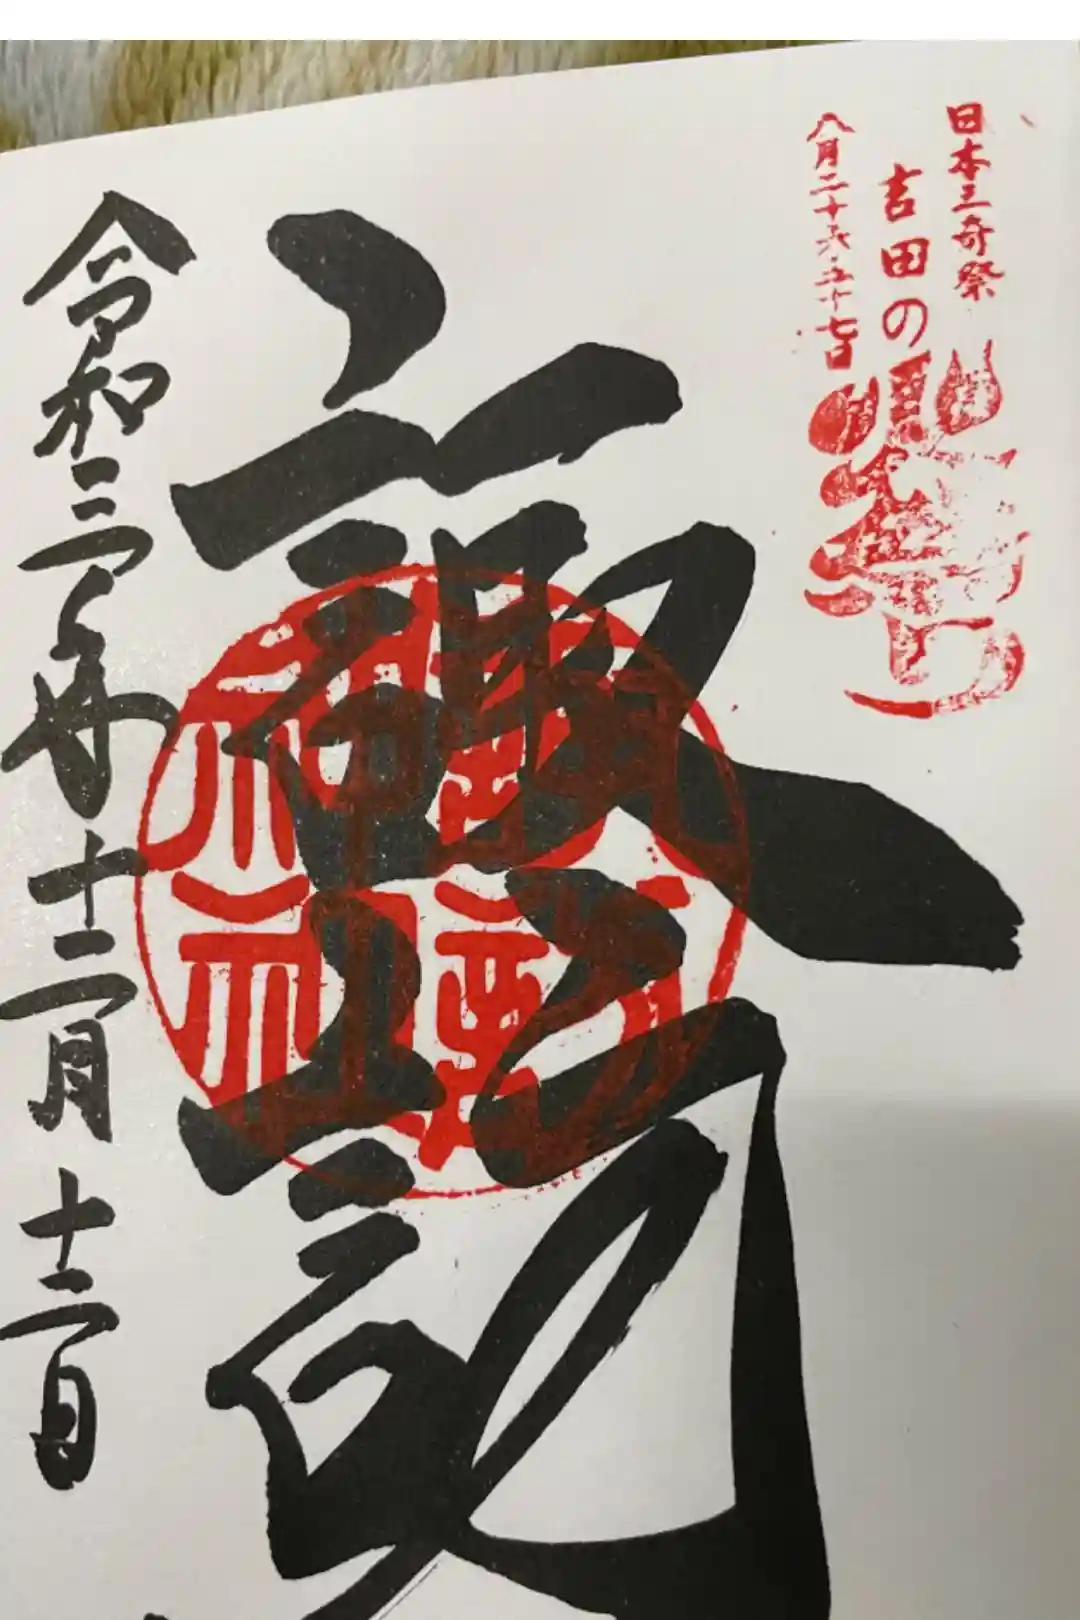 日本三奇祭
吉田の火祭り
八月二十六・二十七日
諏訪
諏訪神社
令和三年十二月十二日